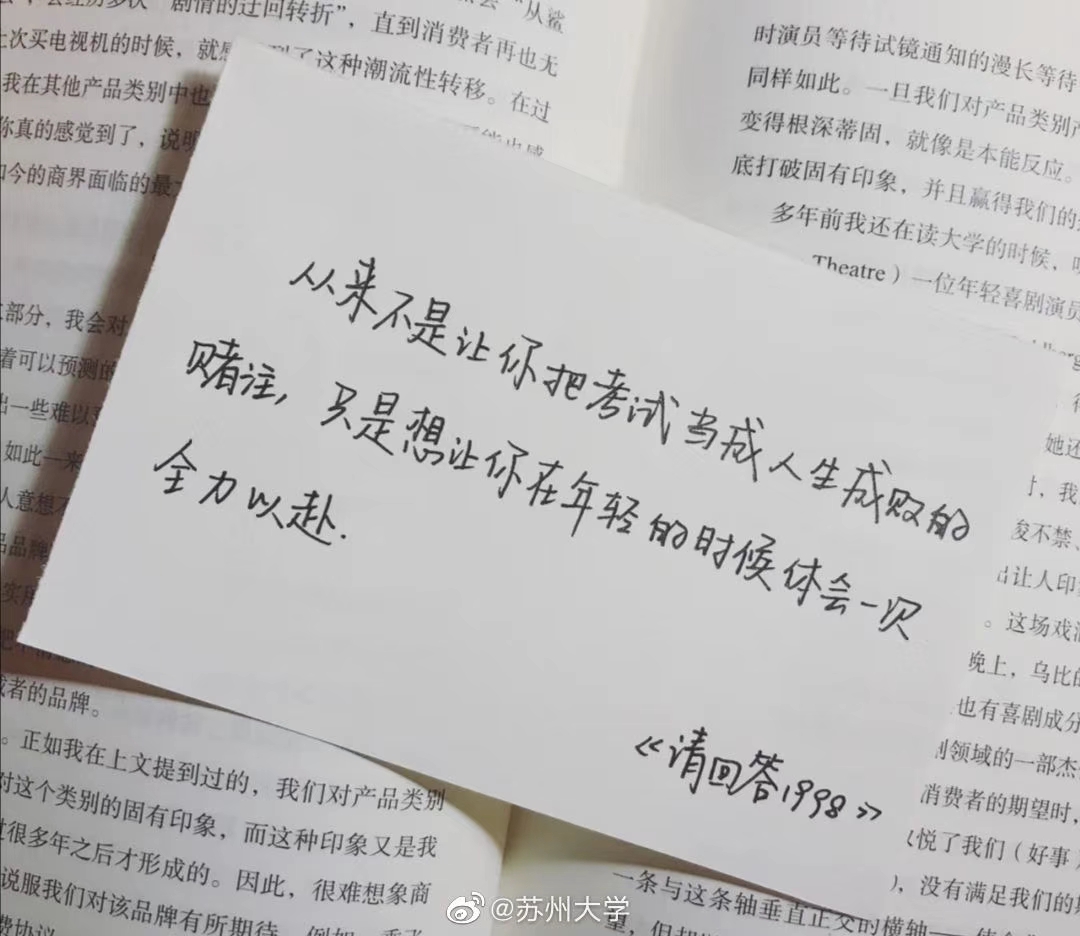 从来不是让你把考试当成人生成败的
赌注，只是想让你在年轻的时候体会一次
全力以赴.
《请回答1998》
剧情的迂回转折”，直到消费者再也无
上次买电视机的时候，就感
了这种潮流性转移。在过
我在其他产品类别中也
你真的感觉到了，说明
如今的商界面临的最
部分，我会对
着可以预测的
出一些难以
如此一来
人意想不
品品牌
或者的品牌。
。正如我在上文提到过的，我们对产品类别
对这个类别的固有印象，而这种印象又是我
过很多年之后才形成的。因此，很难想象商
说服我们对该品牌有所期待
时演员等待试镜通知的漫长等待
同样如此。一旦我们对产品类别
变得根深蒂固，就像是本能反应。
底打破固有印象，并且赢得我们的
多年前我还在读大学的时候，
Theatre）一位年轻喜剧演员
她还
，我
俊不禁、
出让人印
。这场戏
晚上，乌比的
也有喜剧成分
领域的一部杰
消费者的期望时，
悦了我们（好事）
，没有满足我们的
一条与这条轴垂直正交的横轴——
@苏州大学